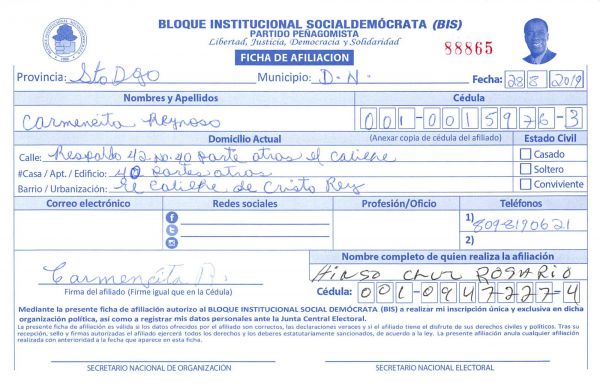 BLOQUE INSTITUCIONAL SOCIALDEMÓCRATA (BIS)
PARTIDO PEÑAGOMISTA
Libertad, Justicia, Democracia y Solidaridad
FICHA DE AFILIACION
88865
Provincia: Sto Dgo Municipio: D.N. Fecha: 2019
Nombres y Apellidos Cédula
Carmencita Reynoso 001-0015976-3
Domicilio Actual (Anexar copia de cédula del afiliado) Estado Civil
Calle: Respaldo 42 no 40 parte atras el Casado
#Casa / Apt. / Edificio: 40 partes atras Soltero
Barrio / Urbanización: El de Cristo Rey Conviviente
Correo electrónico Redes sociales Profesión/Oficio Teléfonos
1) 809-8190621
2)
Nombre completo de quien realiza la afiliación
Carmencita R. ROSARIO
Firma del afiliado (Firme igual que en la Cédula) Cédula: 001-0947227-4
Mediante la presente ficha de afiliación autorizo al BLOQUE INSTITUCIONAL SOCIAL DEMÓCRATA (BIS) a realizar mi inscripción única y exclusiva en dicha
organización política, así como a registrar mis datos personales ante la Junta Central Electoral.
La presente ficha de afiliación es válida si los datos ofrecidos por el afiliado son correctos, las declaraciones veraces y si el afiliado tiene el disfrute de sus derechos civiles y políticos. Tras su
recepción, sello y firmas autorizadas el afiliado ejercerá todos los derechos y los deberes estatutariamente sancionados, de acuerdo a la ley. La presente afiliación anula cualquier afiliación
realizada con anterioridad a la fecha que aparece en esta ficha.
SECRETARIO NACIONAL DE ORGANIZACIÓN SECRETARIO NACIONAL ELECTORAL